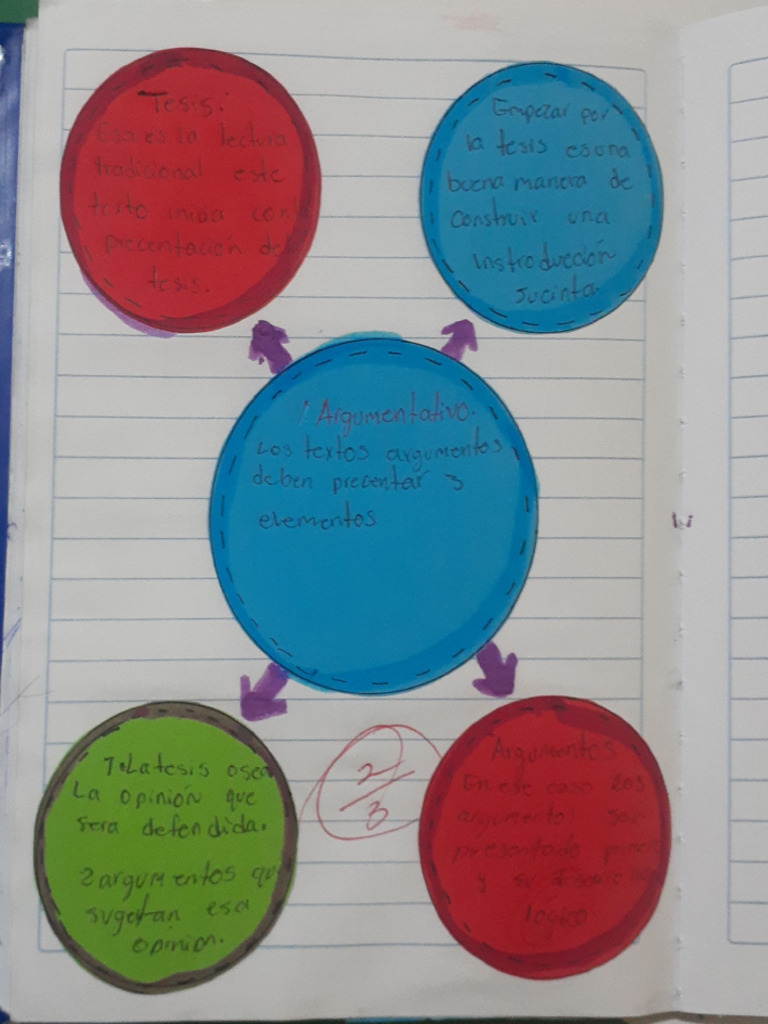 Tesis:
Esa es la lectura
tradicional este
texto inicia con
precentación de
tesis.
Empezar por
la tesis es una
buena manera de
construir una
instroducción
sucinta.
Argumentativo.
Los textos argumentos
deben precentar 3
elementos
1. La tesis osea
La opinión que
sera defendida.
2 argumentos qu
sugetan esa
opinion.
2/3
Argumentos
En ese caso los
argumentos son
presentado
y su
lógico